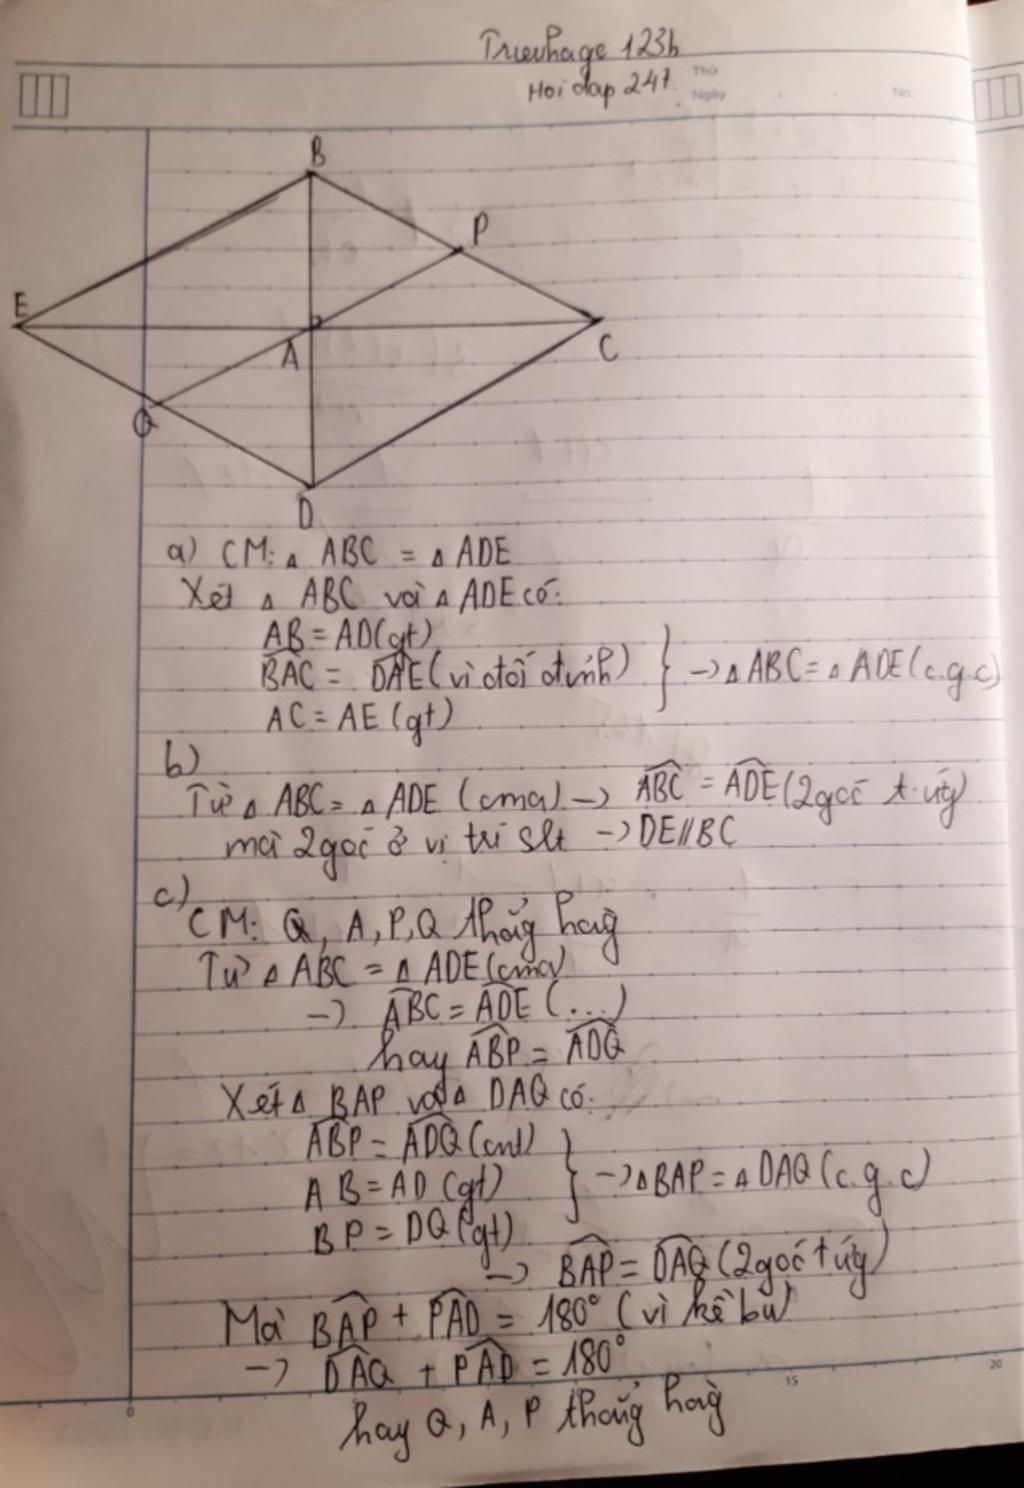 Trưvhage 123h
Hoi dap 247.
Thứ
Ngày
No.
B
P
E
A
C
Q
D
a) CM: Δ ABC = Δ ADE
Xét Δ ABC và Δ ADE có:
AB = AD (gt)
BAC = DAE (vì đối đỉnh) } → Δ ABC = Δ ADE (c.g.c)
AC = AE (gt)
b)
Từ Δ ABC = Δ ADE (cma) → ABC = ADE (2 góc t.ứng)
mà 2 góc ở vị trí slt → DE // BC
c)
CM: Q, A, P, Q thẳng hàng
Từ Δ ABC = Δ ADE (cma)
→ ABC = ADE (...)
hay ABP = ADQ
Xét Δ BAP và Δ DAQ có:
ABP = ADQ (cmt)
AB = AD (gt) } → Δ BAP = Δ DAQ (c.g.c)
BP = DQ (gt)
→ BAP = DAQ (2 góc t ứng)
Mà BAP + PAD = 180° (vì kề bù)
→ DAQ + PAD = 180°
hay Q, A, P thẳng hàng
0
15
20